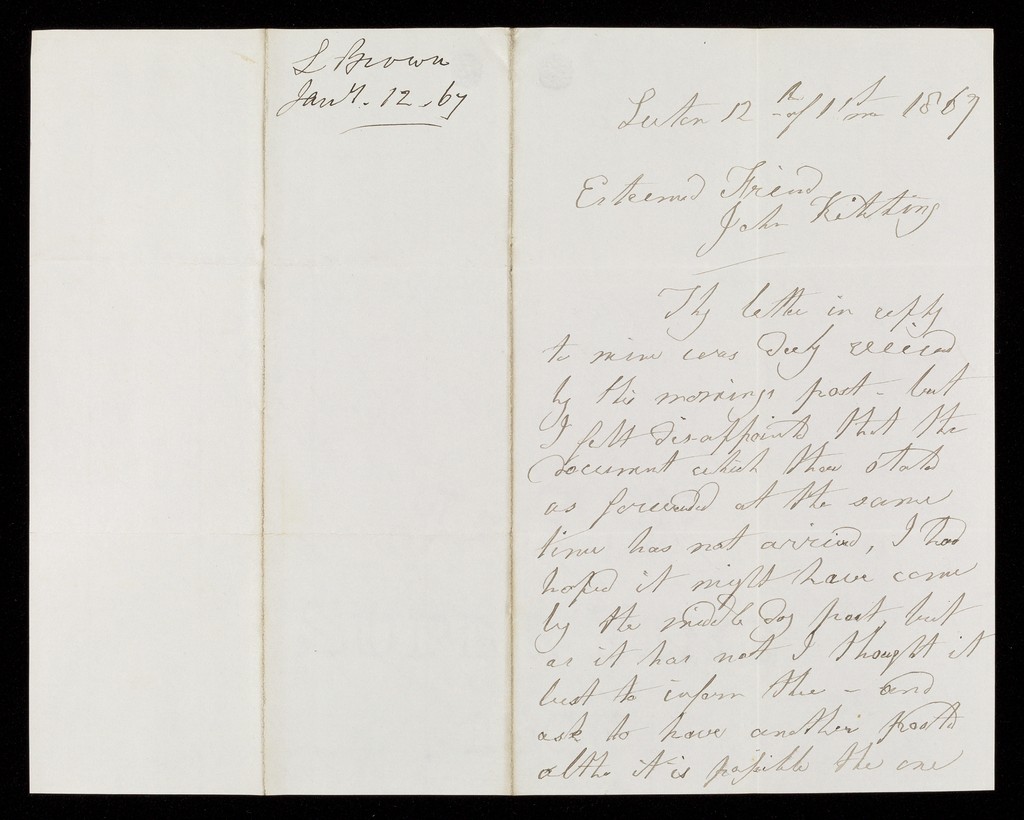 L Brown
Jany. 12. 67
Luton 12th of 1st mo 1867
Esteemed Friend
John Kitching
Thy letter in reply
to mine was duly received
by this mornings post - but
I felt dis-appointed that the
document which thou stated
as forwarded at the same
time has not arrived, I had
hoped it might have come
by the middle day post, but
as it has not I thought it
best to inform thee - and
ask to have another posted
altho it is possible the one